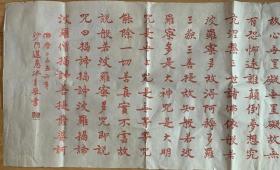 心無罣礙無罣礙故無
有恐怖遠離顛倒夢想究
竟涅槃三世諸佛依般若
波羅蜜多故得阿耨多羅
三藐三菩提故知般若波
羅蜜多是大神咒是大明
咒是無上咒是無等等咒
能除一切苦真實不虛故
說般若波羅蜜多咒即說
咒曰揭諦揭諦波羅揭諦
波羅僧揭諦菩提薩婆訶
沙門道恩沐手敬書